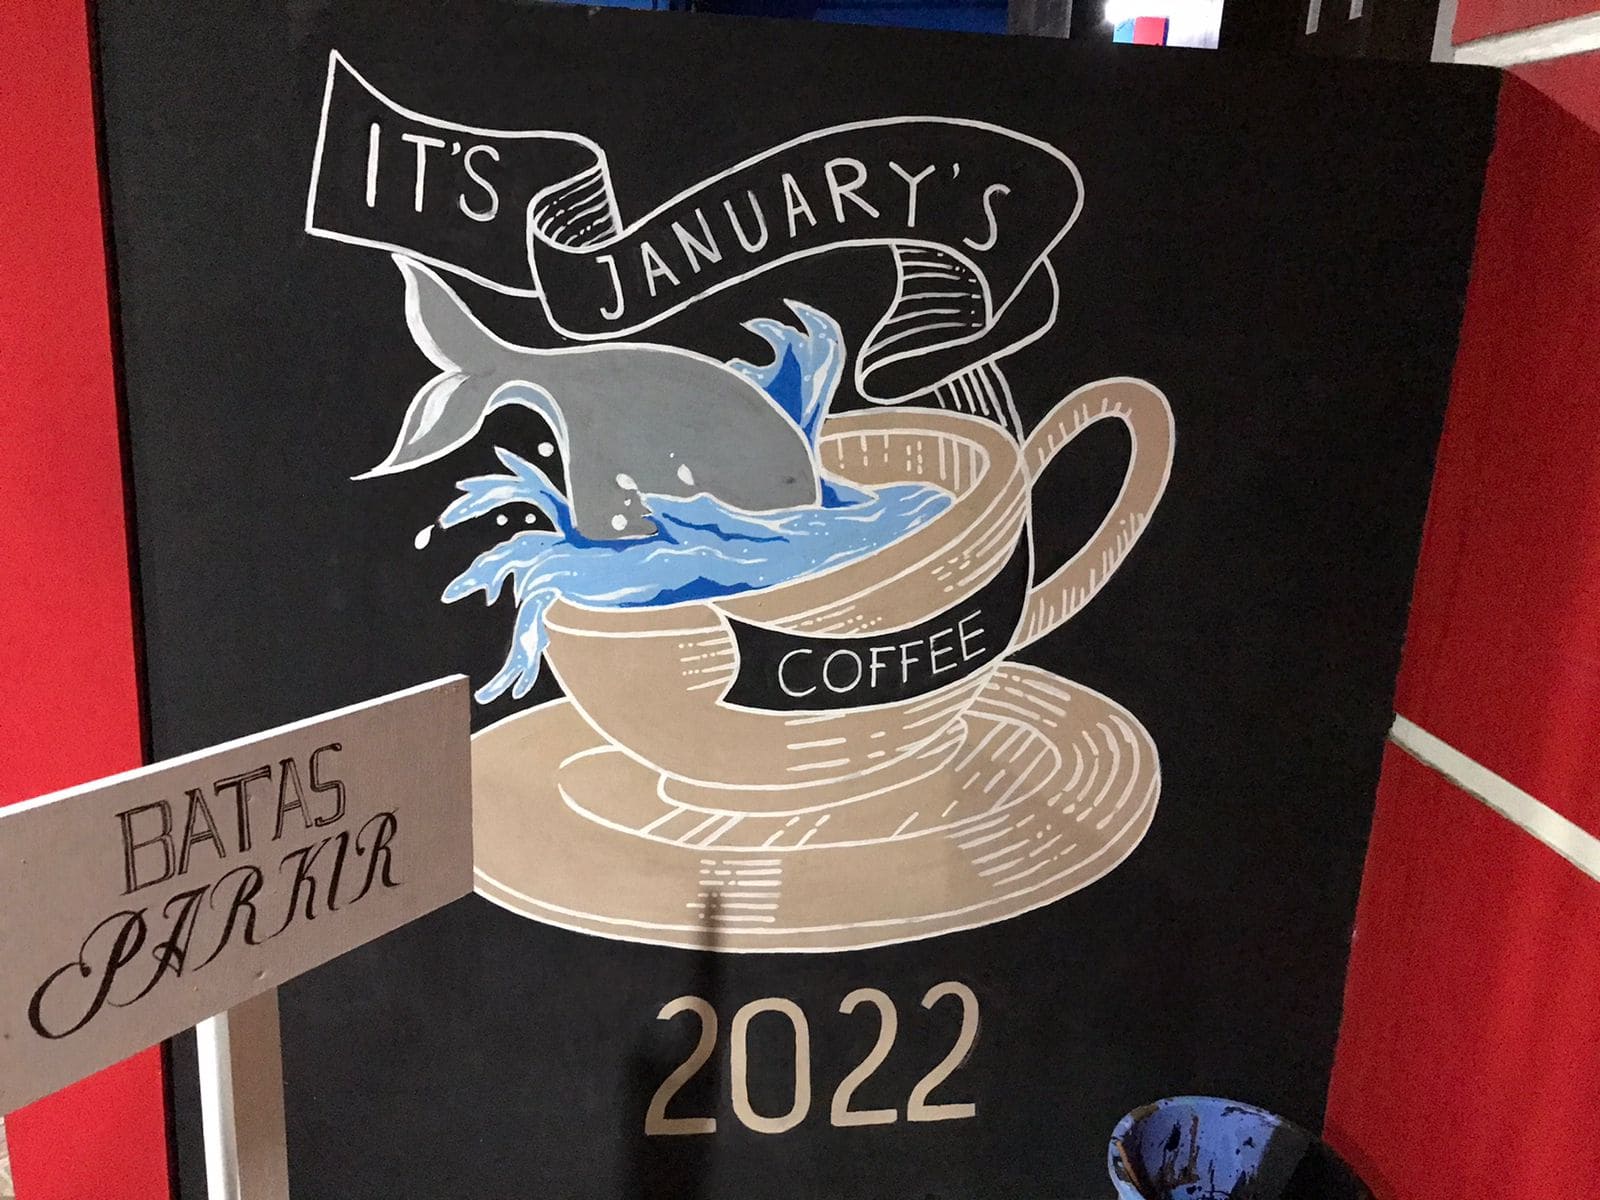 IT'S
JANUARY'S
COFFEE
2022
BATAS
PARKIR